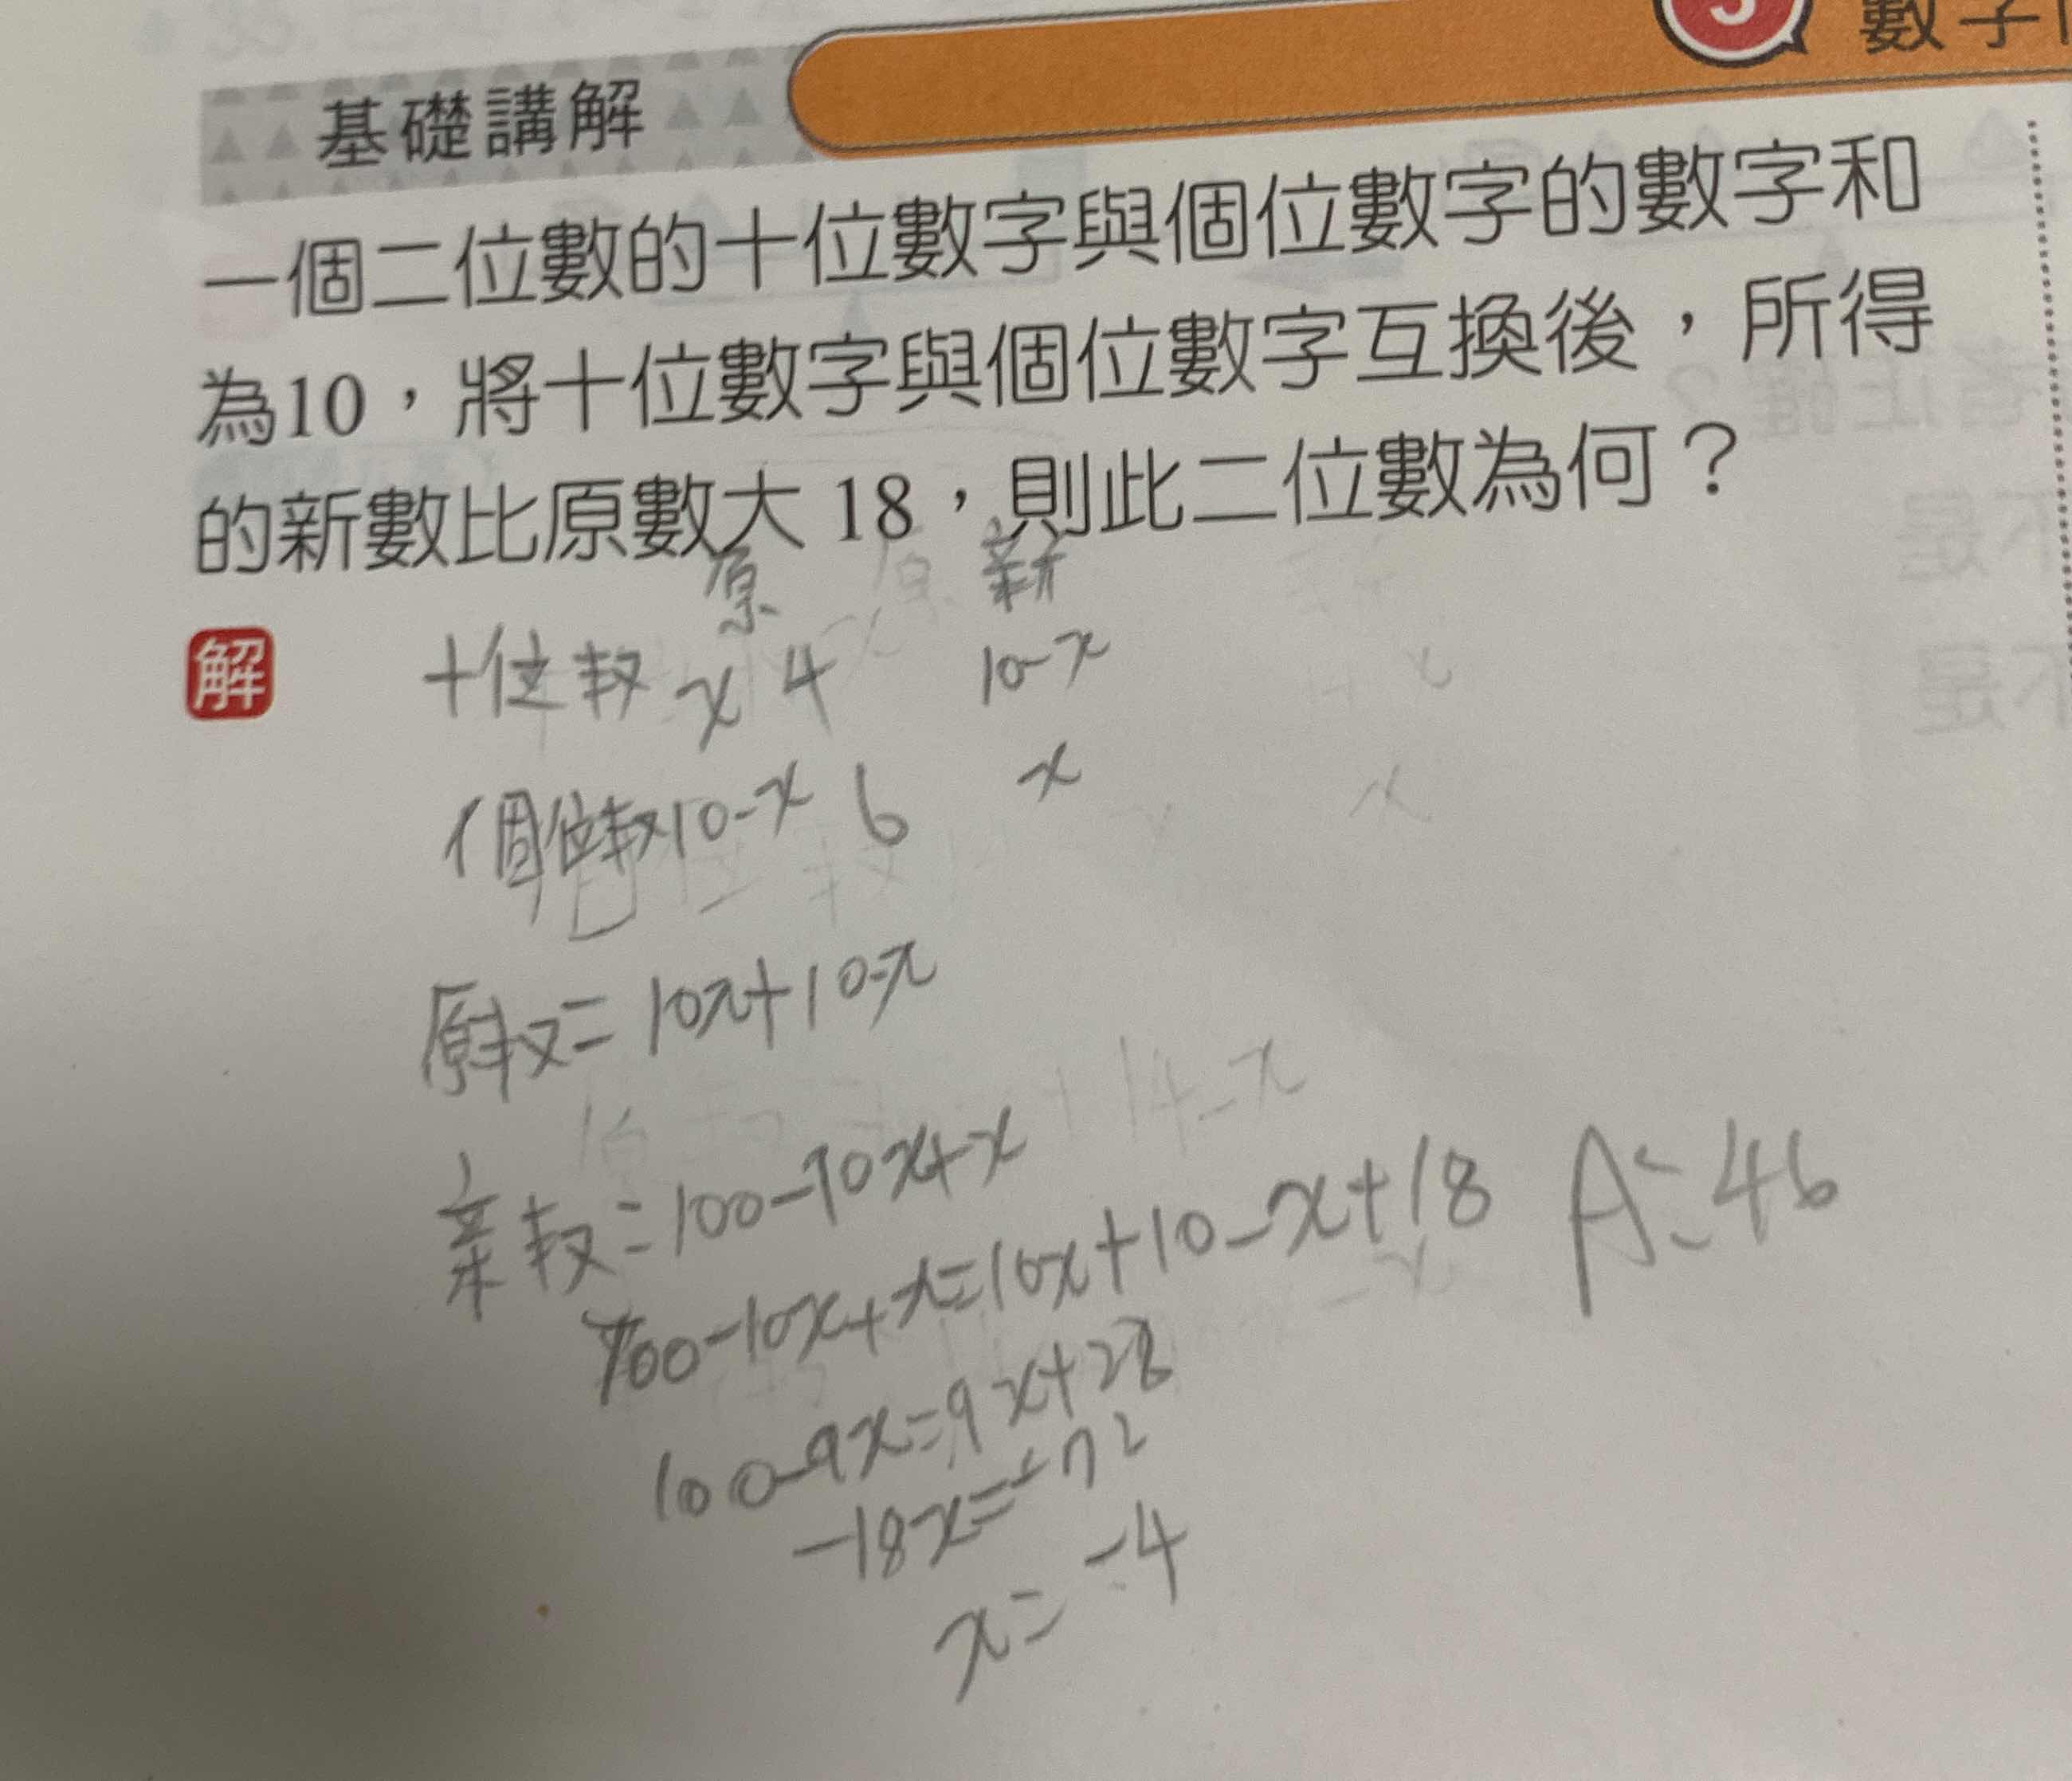 數字
基礎講解
一個二位數的十位數字與個位數字的數字和
為10，將十位數字與個位數字互換後，所得
的新數比原數大 18，則此二位數為何？
原 新
解 十位数 x 4 10-x
個位数 10-x 6 x
原数=10x+10-x
新数=100-10x+x
100-10x+x=10x+10-x+18 A:46
100-9x=9x+28
-18x=-72
x=-4